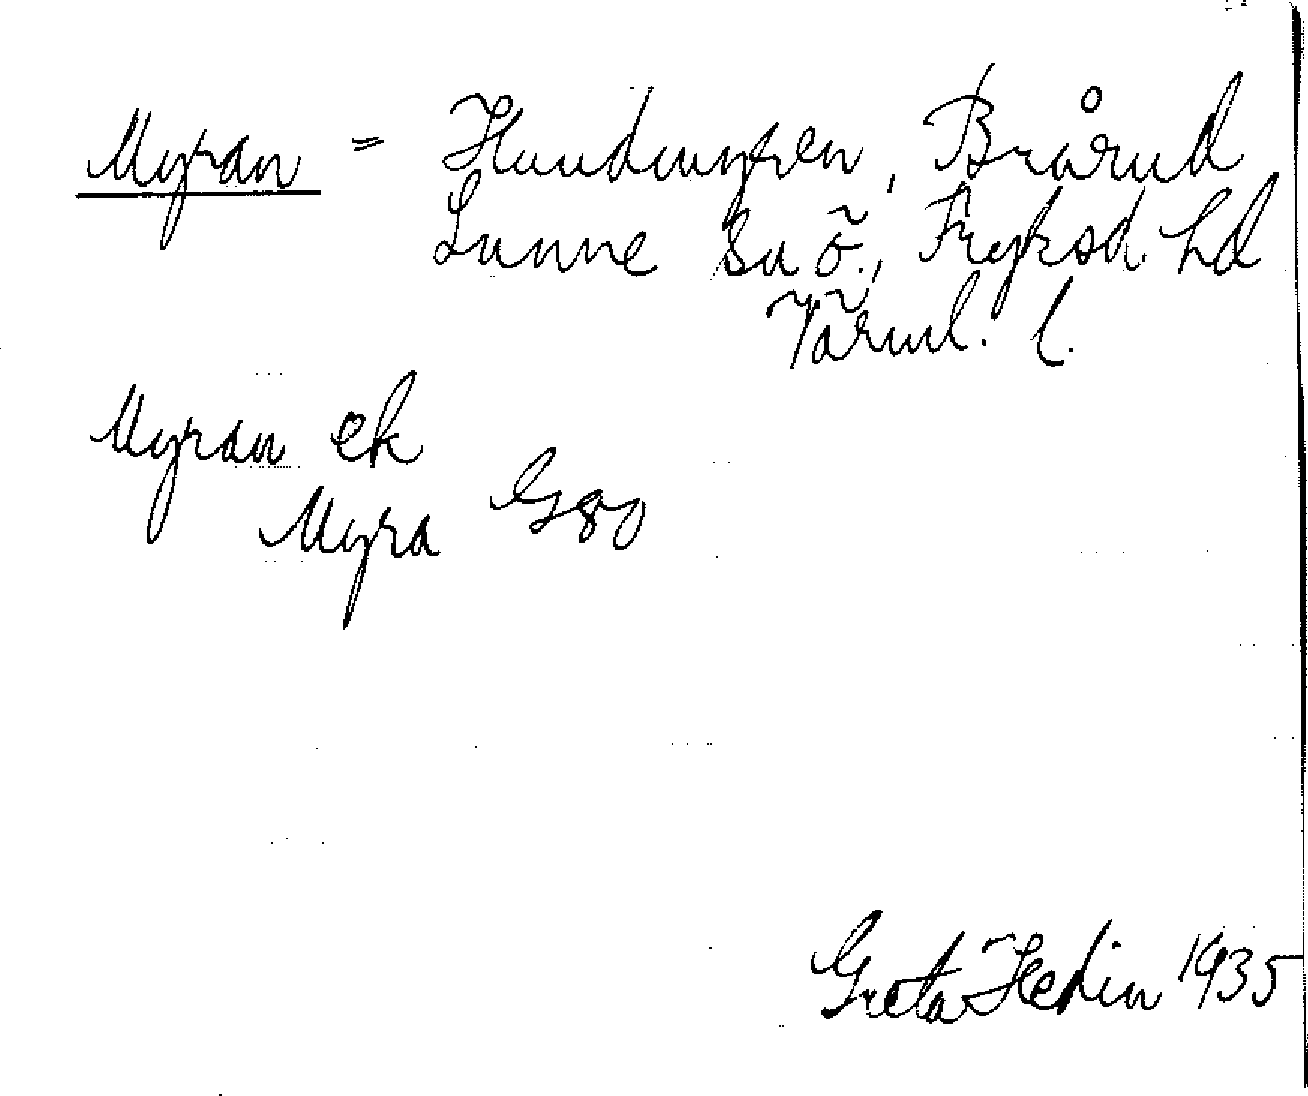 Myran = Hundmyren, Brårud
Sunne sn ö., Fryksd. hd
Värml. l.
Myran ek
Myra G80
Greta Hedin 1935